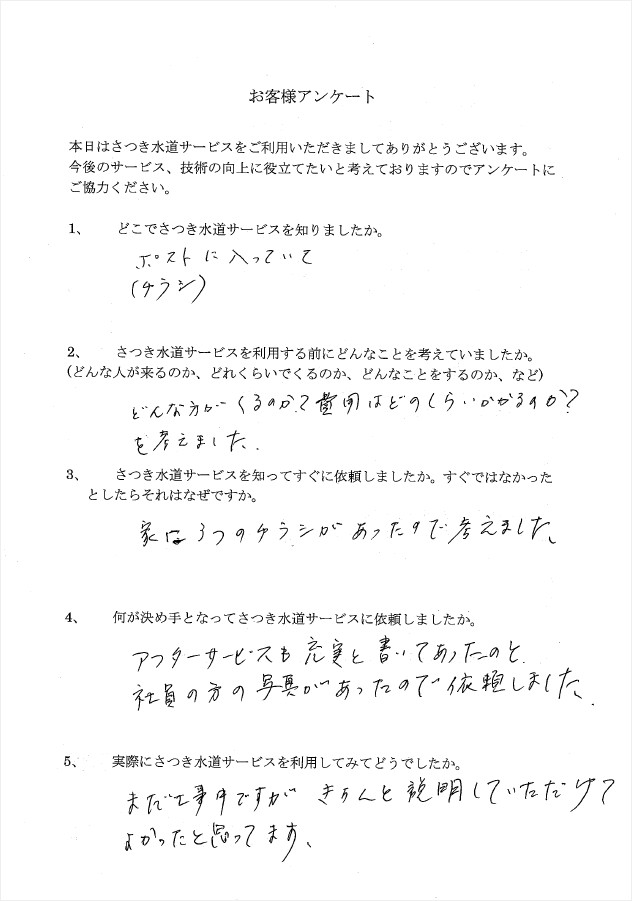 お客様アンケート
本日はさつき水道サービスをご利用いただきましてありがとうございます。
今後のサービス、技術の向上に役立てたいと考えておりますのでアンケートに
ご協力ください。
1、 どこでさつき水道サービスを知りましたか。
ポストに入っていて
(チラシ)
2、 さつき水道サービスを利用する前にどんなことを考えていましたか。
(どんな人が来るのか、どれくらいでくるのか、どんなことをするのか、など)
どんな方がくるのか?費用はどのくらいかかるのか?
を考えました.
3、 さつき水道サービスを知ってすぐに依頼しましたか。すぐではなかった
としたらそれはなぜですか。
家は3つのチラシがあったので考えました、
4、 何が決め手となってさつき水道サービスに依頼しましたか。
アフターサービスも充実と書いてあったのと、
社員の方の写真があったので依頼しました.
5、 実際にさつき水道サービスを利用してみてどうでしたか。
まだ工事中ですがきちんと説明していただけて
よかったと思ってます、